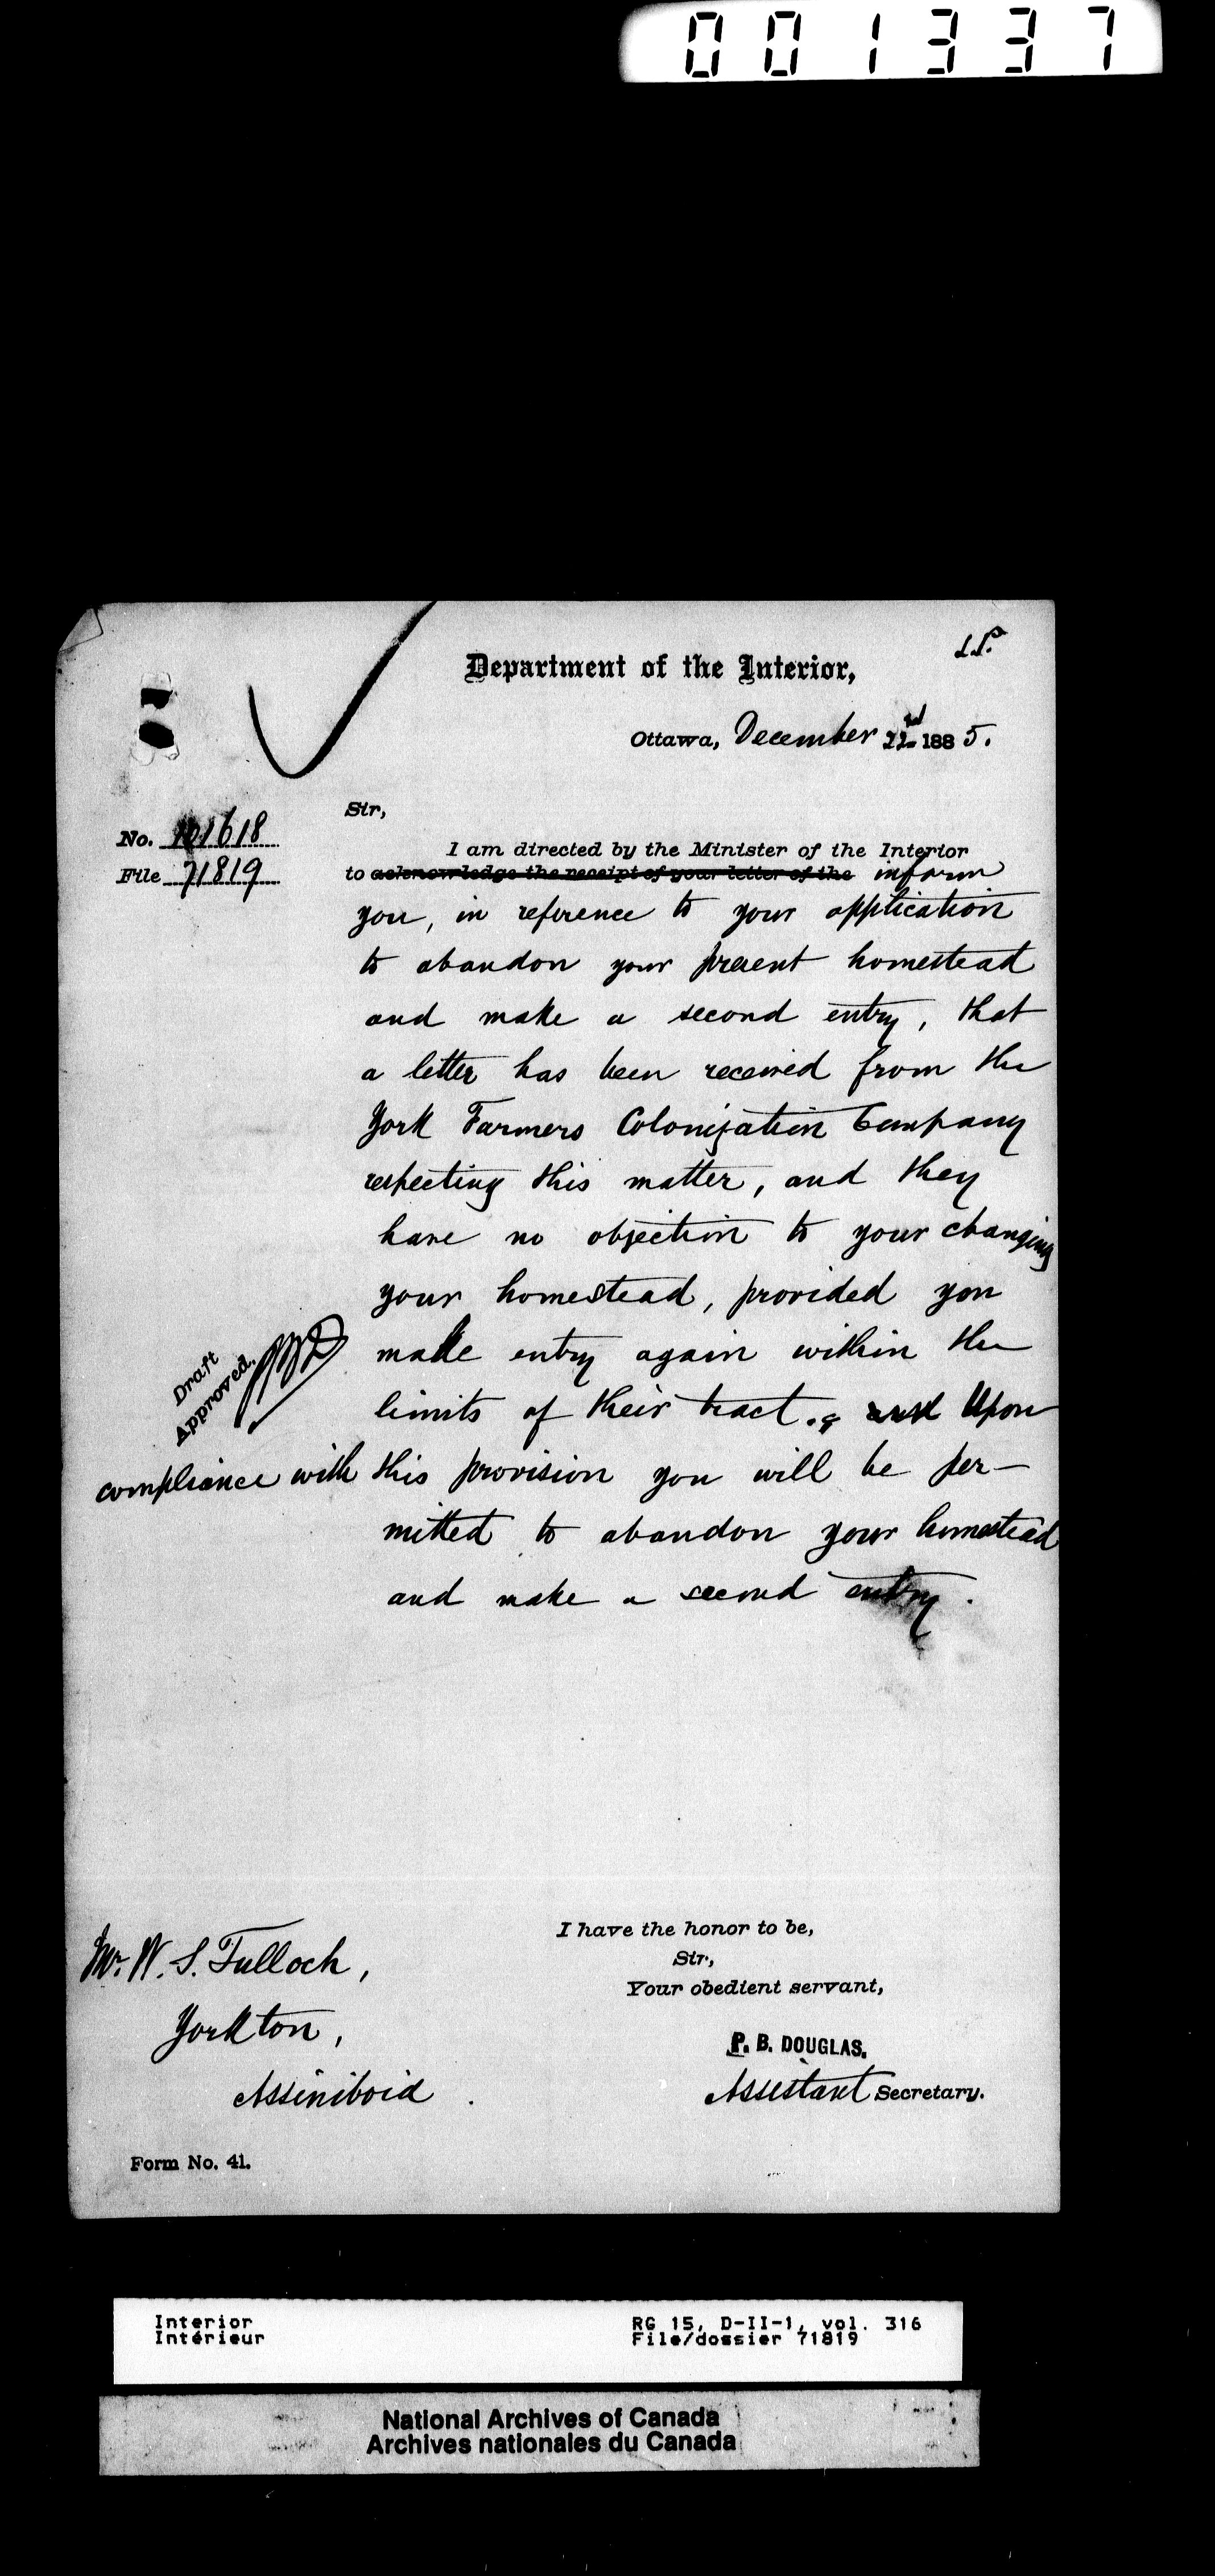 001337
Department of the Interior,
Ottawa, December 22nd 1885.
No. 101618
File 71819
Sir,
I am directed by the Minister of the Interior
to acknowledge the receipt of your letter of the inform
you, in reference to your application
to abandon your present homestead
and make a second entry, that
a letter has been received from the
York Farmers Colonization Company
respecting this matter, and they
have no objection to your changing
your homestead, provided you
make entry again within the
limits of their tract. and Upon
Draft
Approved.
compliance with this provision you will be per-
mitted to abandon your homestead
and make a second entry.
I have the honor to be,
Sir,
Your obedient servant,
P. B. DOUGLAS.
Assistant Secretary.
Mr. W. S. Tulloch,
Yorkton,
Assiniboia.
Form No. 41.
Interior
Intérieur
RG 15, D-II-1, vol. 316
File/dossier 71819
National Archives of Canada
Archives nationales du Canada